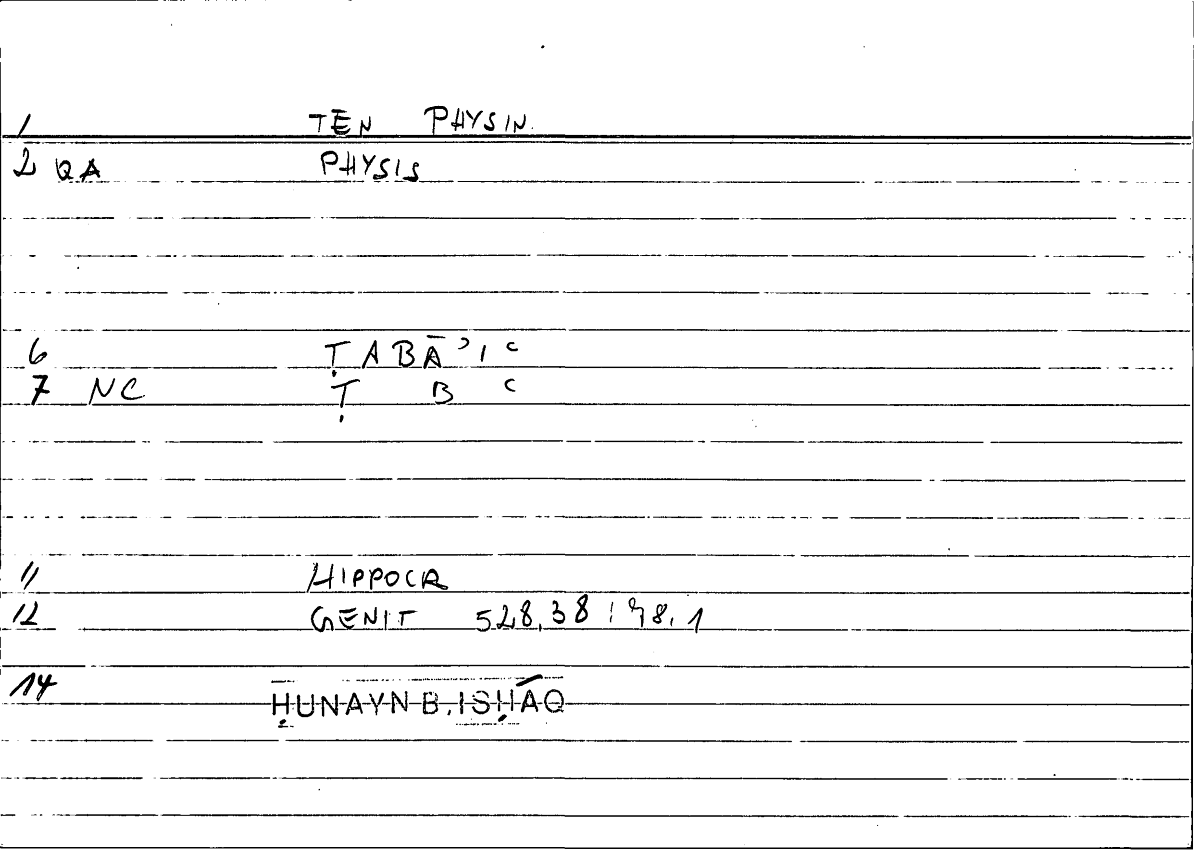 1 TĒN PHYSIN.
2 QA PHYSIS
6 ṬABĀʾIʿ
7 NC Ṭ B ʿ
11 HIPPOCR
12 GENIT 528,38 : 98,1
14 ḤUNAYN B. ISḤĀQ